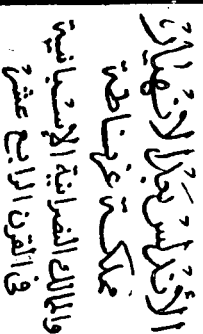 الأندلس الانهيار
مملكة غرناطة
والممالك النصرانية الإسبانية
في القرن الرابع عشر